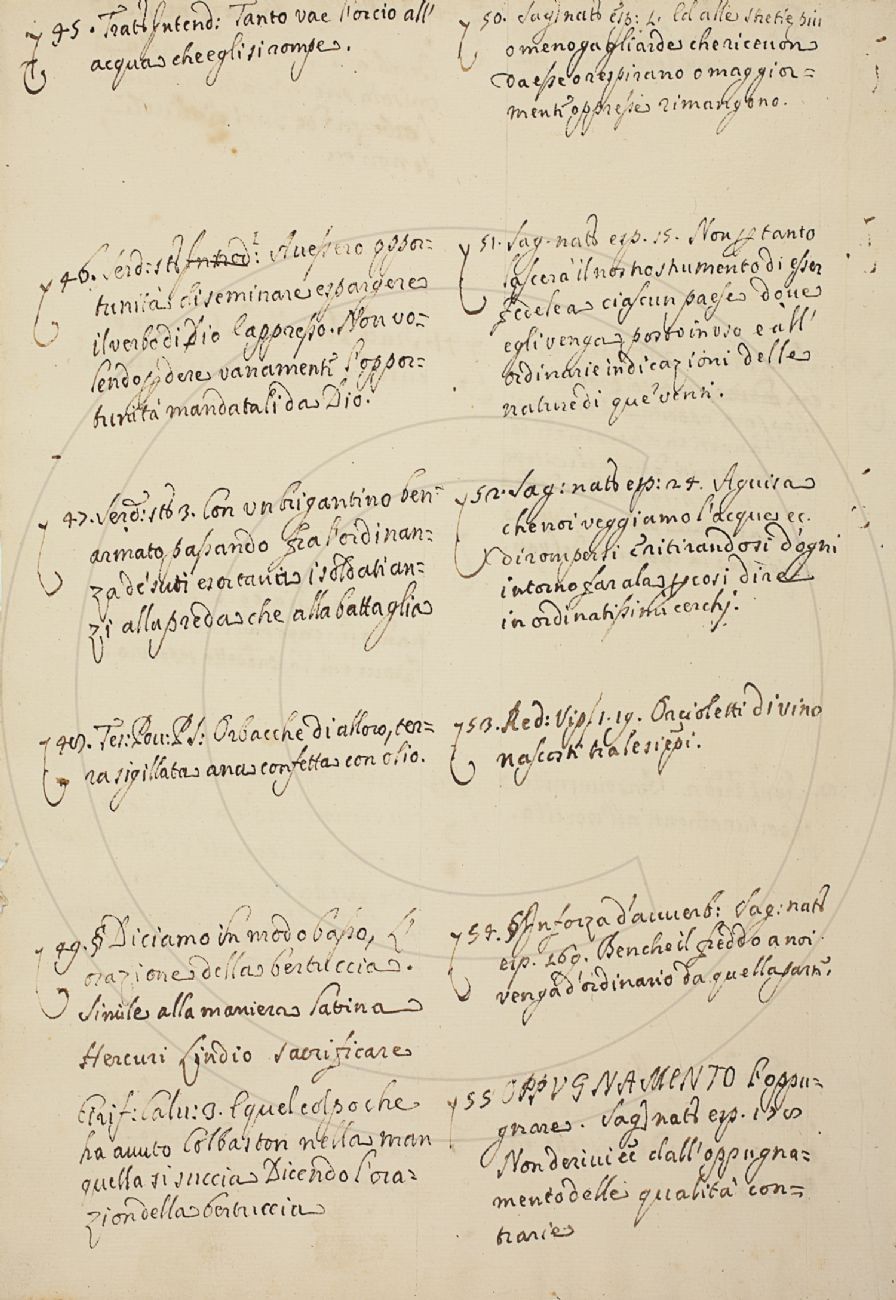 45. Tratt: Intend: Tanto va l'orcio all'
acqua che egli si rompe.
46. Serd: st: Intred: Avessero oppor=
tunità di seminare e spargere
il verbo di Dio l'appresso. Non vo=
lendo pdere vanamente l'oppor=
tunità mandatali da Dio.
47. Serd: st: 3. Con un brigantino ben
armato passando fra l'ordinan=
za de' suoi esortava i soldati an=
zi alla preda che alla battaglia
48. Tes: Pov: P.S: Orbacche di alloro, ter=
ra sigillata ana confetta con olio.
49. § Diciamo in modo basso, L'
orazione della bertuccia.
Simile alla maniera latina
Hercuri Lindio sacrificare
Grif: Calv: 3. E quel colpo che
ha avuto Colbaston nella man
quella si succia Dicendo l'ora=
zion della bertuccia
50. Sag: nat: esp: 4. Ed alle strette più
o meno gagliarde che ricevon
da esse o respirano o maggior=
mente oppresse rimangono.
51. Sag: nat: esp. 15. Non p tanto
lascerà il nostro strumento di esser
fedele a ciascun paese dove
egli venga posto in uso e all'
ordinarie indicazioni delle
nature di que' venti.
52. Sag: nat: esp: 24. A guisa
che noi veggiamo l'acqua ec.
di rompersi e ritirandosi d'ogni
intorno far ala p così dire
in ordinatissimi cerchj.
53. Red: Vip: 1. 19. Orcioletti di vino
nascosti tra le siepi.
54. § In forza d'avverb: Sag: nat:
esp. 169. Benche il freddo a noi
venga d'ordinario da quella parte.
55 OPPUGNAMENTO L'oppu=
gnare. Sag: nat: esp.
Non derivi ec dall'oppugna=
mento delle qualità con=
trarie